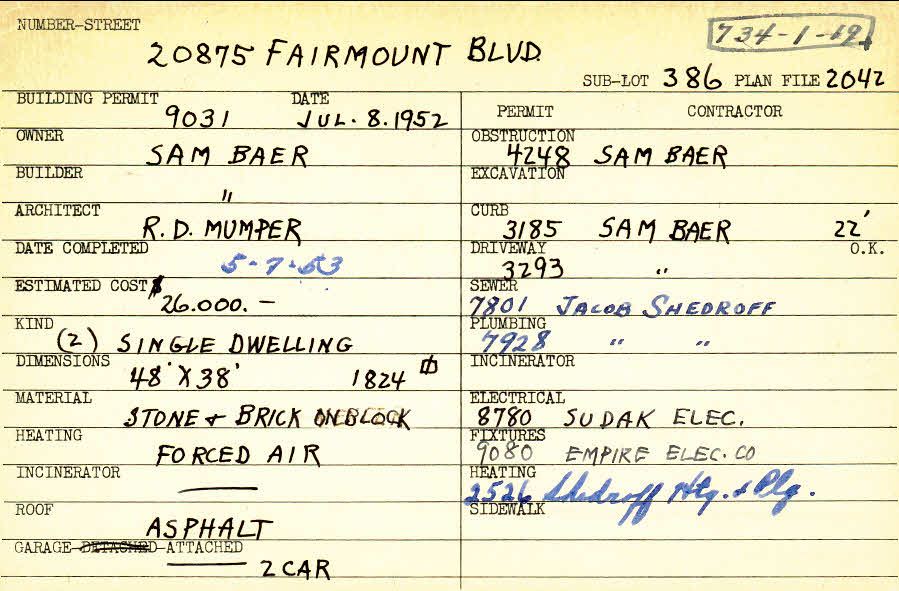 NUMBER-STREET
20875 FAIRMOUNT BLVD.
734-1-19
SUB-LOT 386 PLAN FILE 2042
BUILDING PERMIT DATE
9031 JUL. 8. 1952
OWNER
SAM BAER
BUILDER
"
ARCHITECT
R. D. MUMPER
DATE COMPLETED
5-7-53
ESTIMATED COST $
26.000. —
KIND
(2) SINGLE DWELLING
DIMENSIONS
48' X 38' 1824
MATERIAL
STONE + BRICK ON BLOCK
HEATING
FORCED AIR
INCINERATOR
—
ROOF
ASPHALT
GARAGE-DETACHED-ATTACHED
2 CAR
PERMIT CONTRACTOR
OBSTRUCTION
4248 SAM BAER
EXCAVATION
CURB
3185 SAM BAER 22'
DRIVEWAY O.K.
3293 "
SEWER
7801 JACOB SHEDROFF
PLUMBING
7928 " "
INCINERATOR
ELECTRICAL
8780 SUDAK ELEC.
FIXTURES
9080 EMPIRE ELEC. CO
HEATING
2526 Shedroff Htg. & Plg.
SIDEWALK